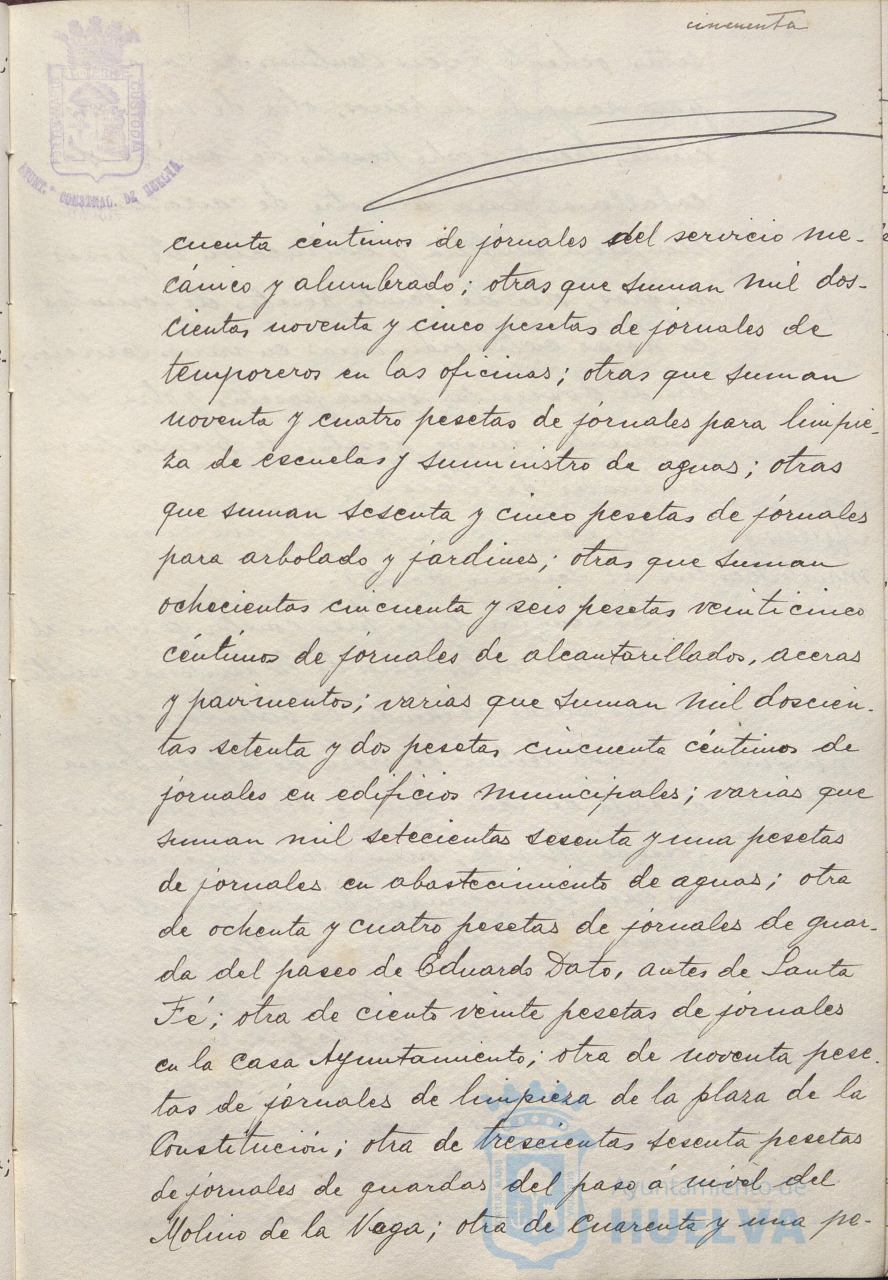 cincuenta
PORTUS MARIS
CUSTODIA
AYUNT.º CONSTNAL. DE HUELVA
cuenta céntimos de jornales del servicio me-
cánico y alumbrado; otras que suman mil dos-
cientas noventa y cinco pesetas de jornales de
temporeros en las oficinas; otras que suman
noventa y cuatro pesetas de jórnales para limpie-
za de escuelas y suministro de aguas; otras
que suman sesenta y cinco pesetas de jórnales
para arbolado y jardines; otras que suman
ochecientas cincuenta y seis pesetas veinticinco
céntimos de jórnales de alcantarillados, aceras
y pavimentos; varias que suman mil doscien-
tas setenta y dos pesetas cincuenta céntimos de
jórnales en edificios municipales; varias que
suman mil setecientas sesenta y una pesetas
de jornales en abastecimiento de aguas; otra
de ochenta y cuatro pesetas de jórnales de guar-
da del paseo de Eduardo Dato, antes de Santa
Fé; otra de ciento veinte pesetas de jórnales
en la Casa Ayuntamiento; otra de noventa pese-
tas de jórnales de limpieza de la plaza de la
Constitución; otra de trescientas sesenta pesetas
de jórnales de guardas del paso á nivel del
Molino de la Vega; otra de cuarenta y una pe-
Ayuntamiento de
HUELVA